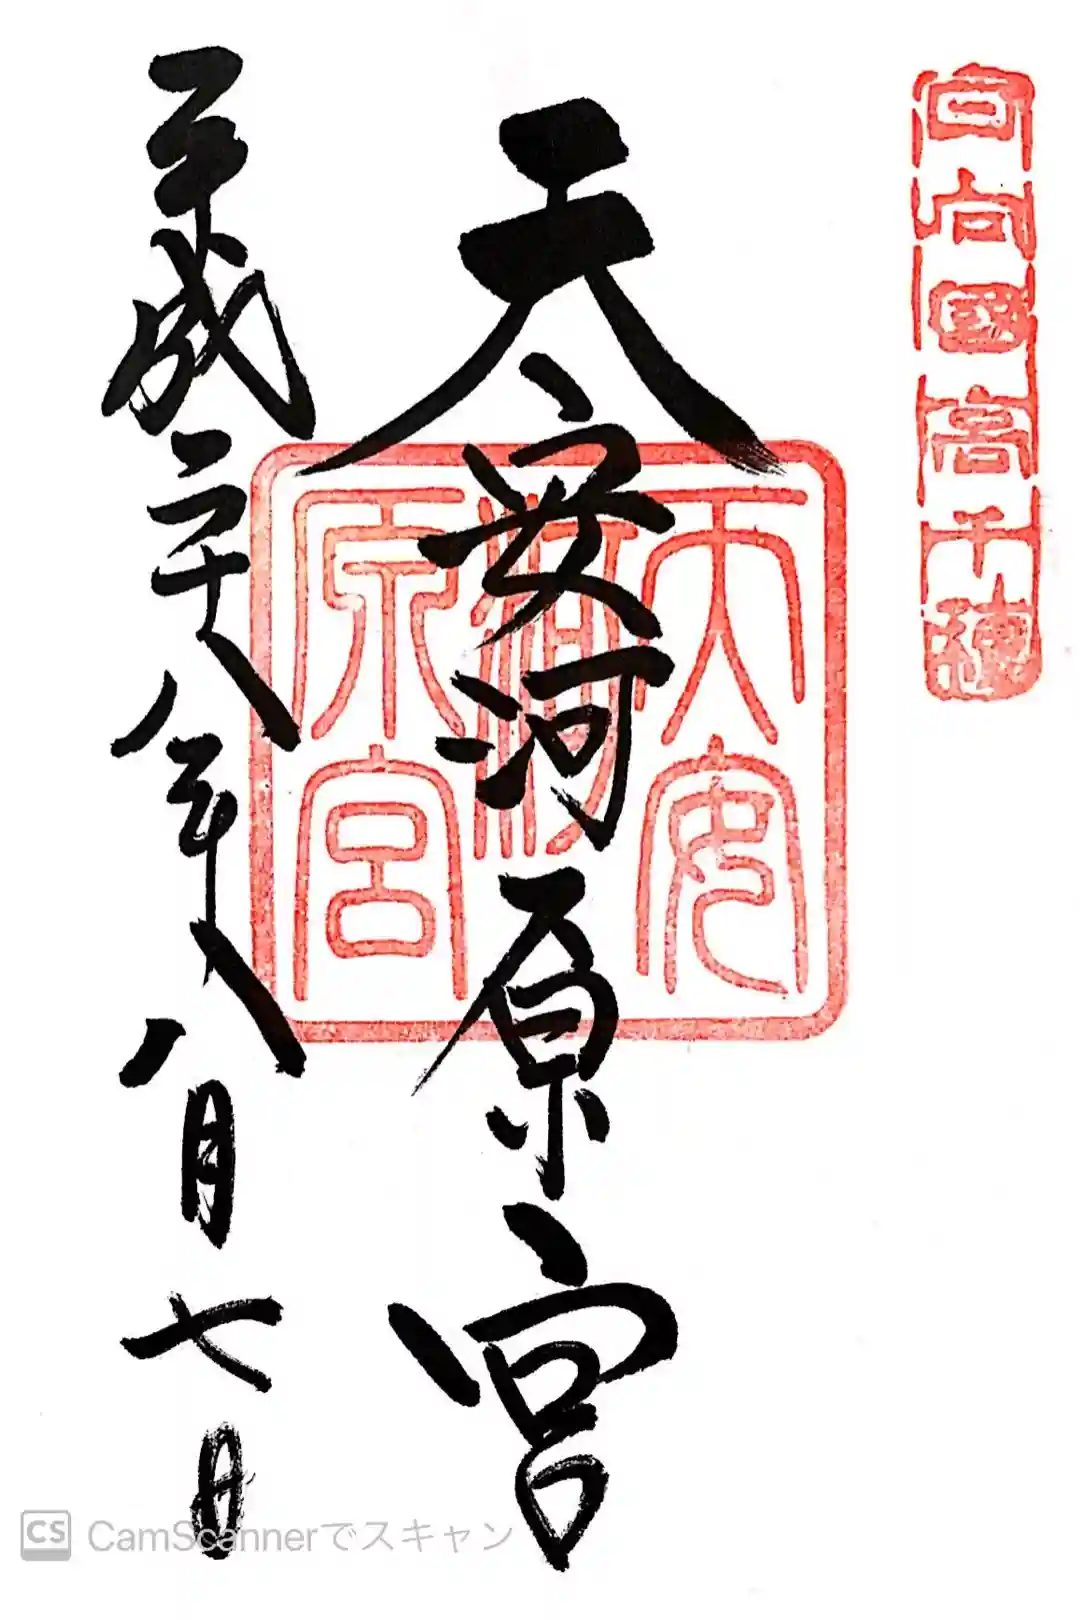 日向國高千穂
天安河原宮
天安
河
原宮
平成二十八年八月七日
CS CamScannerでスキャン